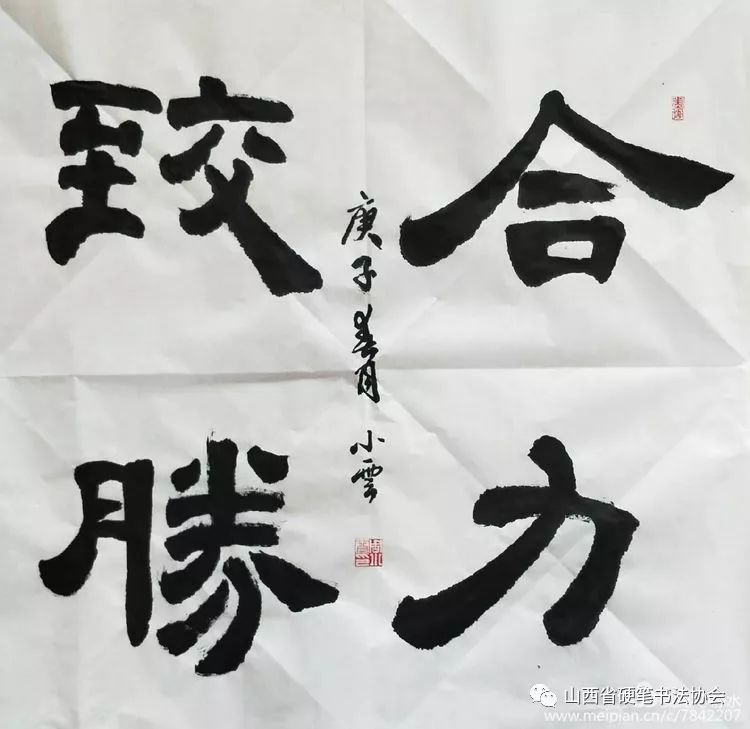 合力
致勝
庚子春月 小雲
山西省硬笔书法协会
www.meipian.cn/c/7842207